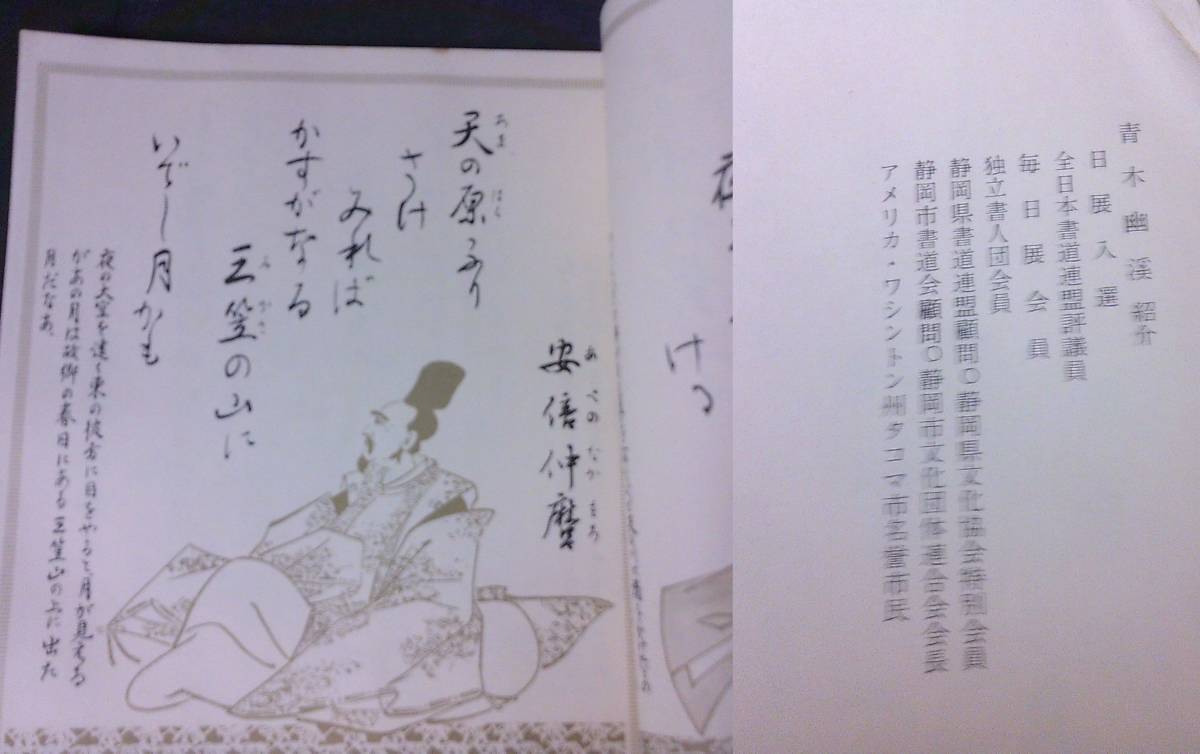 安倍仲麿
あべのなかまろ
天の原ふり
あまはら
さけ
みれば
かすがなる
三笠の山に
みかさ
いでし月かも
夜の大空を遠く東の彼方に目をやると月が見える
があの月は故郷の春日にある三笠山の上に出た
月だなあ、
ける
青木幽溪紹介
日展入選
全日本書道連盟評議員
毎日展会員
独立書人団会員
静岡県書道連盟顧問〇静岡県文化協会特別会員
静岡市書道会顧問〇静岡市文化団体連合会会長
アメリカ・ワシントン州タコマ市名誉市民